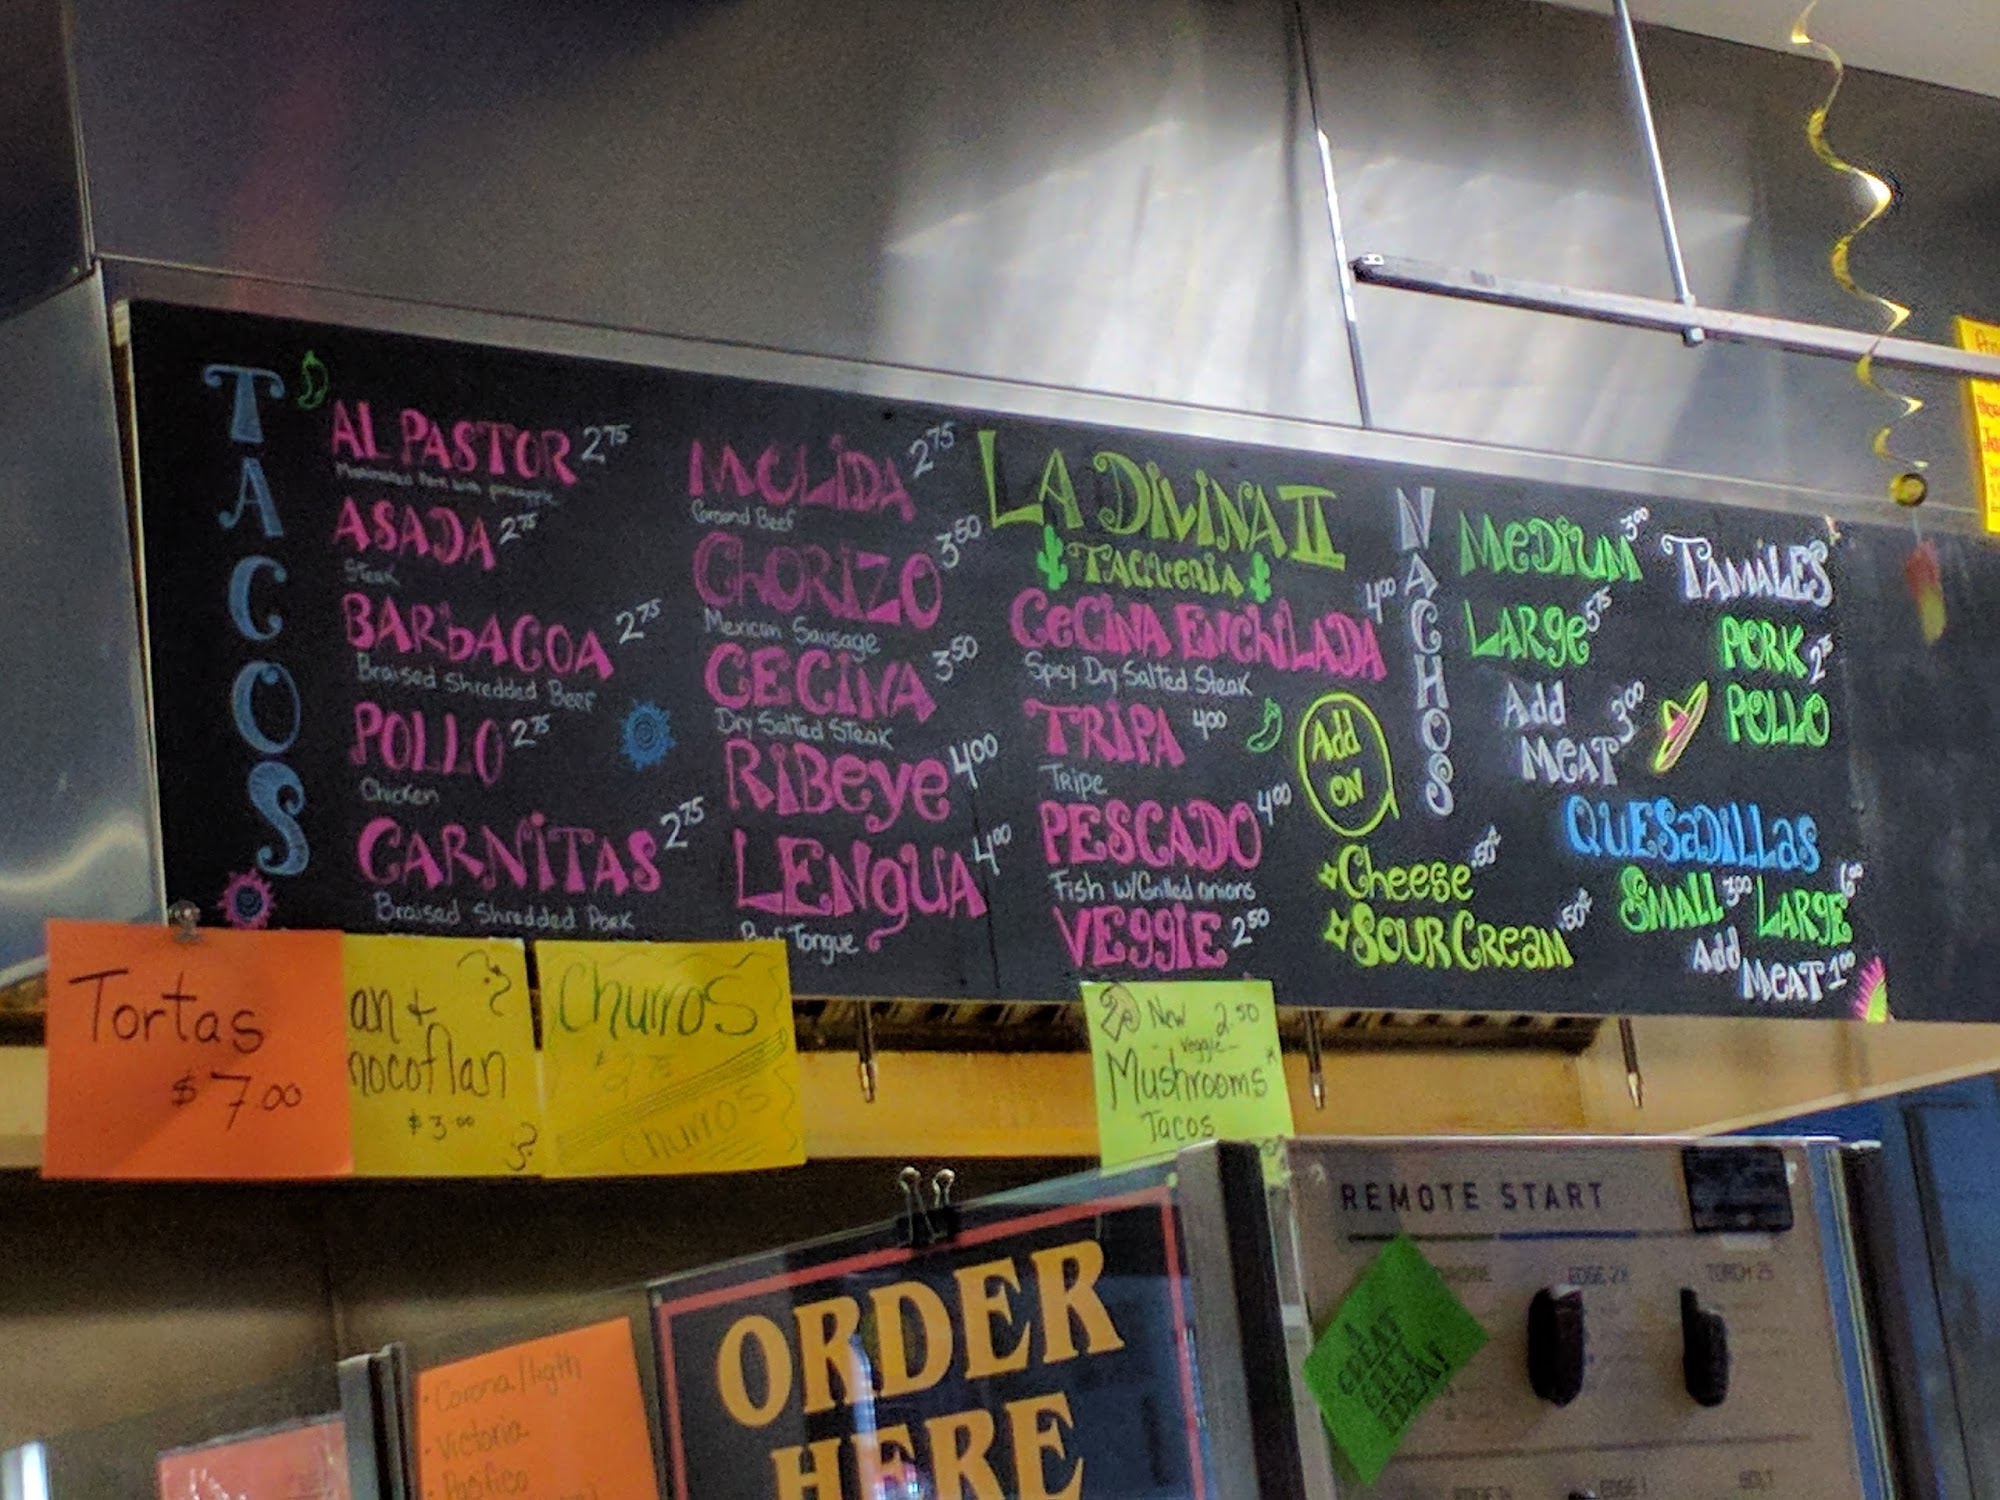 TACOS
AL PASTOR 2.75
Marinated Pork with pineapple
ASADA 2.75
Steak
BARBACOA 2.75
Braised Shredded Beef
POLLO 2.75
Chicken
CARNITAS 2.75
Braised Shredded Pork
MOLIDA 2.75
Ground Beef
CHORIZO 3.50
Mexican Sausage
CECINA 3.50
Dry Salted Steak
RIBEYE 4.00
LENGUA 4.00
Beef Tongue
LA DIVINA II
TAQUERIA
CECINA ENCHILADA 4.00
Spicy Dry Salted Steak
TRIPA 4.00
Tripe
PESCADO 4.00
Fish w/Grilled onions
VEGGIE 2.50
Add
ON
Cheese .50¢
SOUR CREAM .50¢
NACHOS
MEDIUM 3.00
LARGE 5.75
Add
MEAT 3.00
TAMALES
PORK 2.75
POLLO
QUESADILLAS
SMALL 3.00 LARGE 6.00
Add
MEAT 1.00
Tortas
$7.00
an +
hocoflan
$3.00
Churros
Churros
New 2.50
veggie
Mushrooms
Tacos
REMOTE START
EDGE 2H
TORCH 25
A
GREAT
GIFT
IDEA!
BOLT
ORDER
HERE
Corona/ligth
Victoria
Pacifico